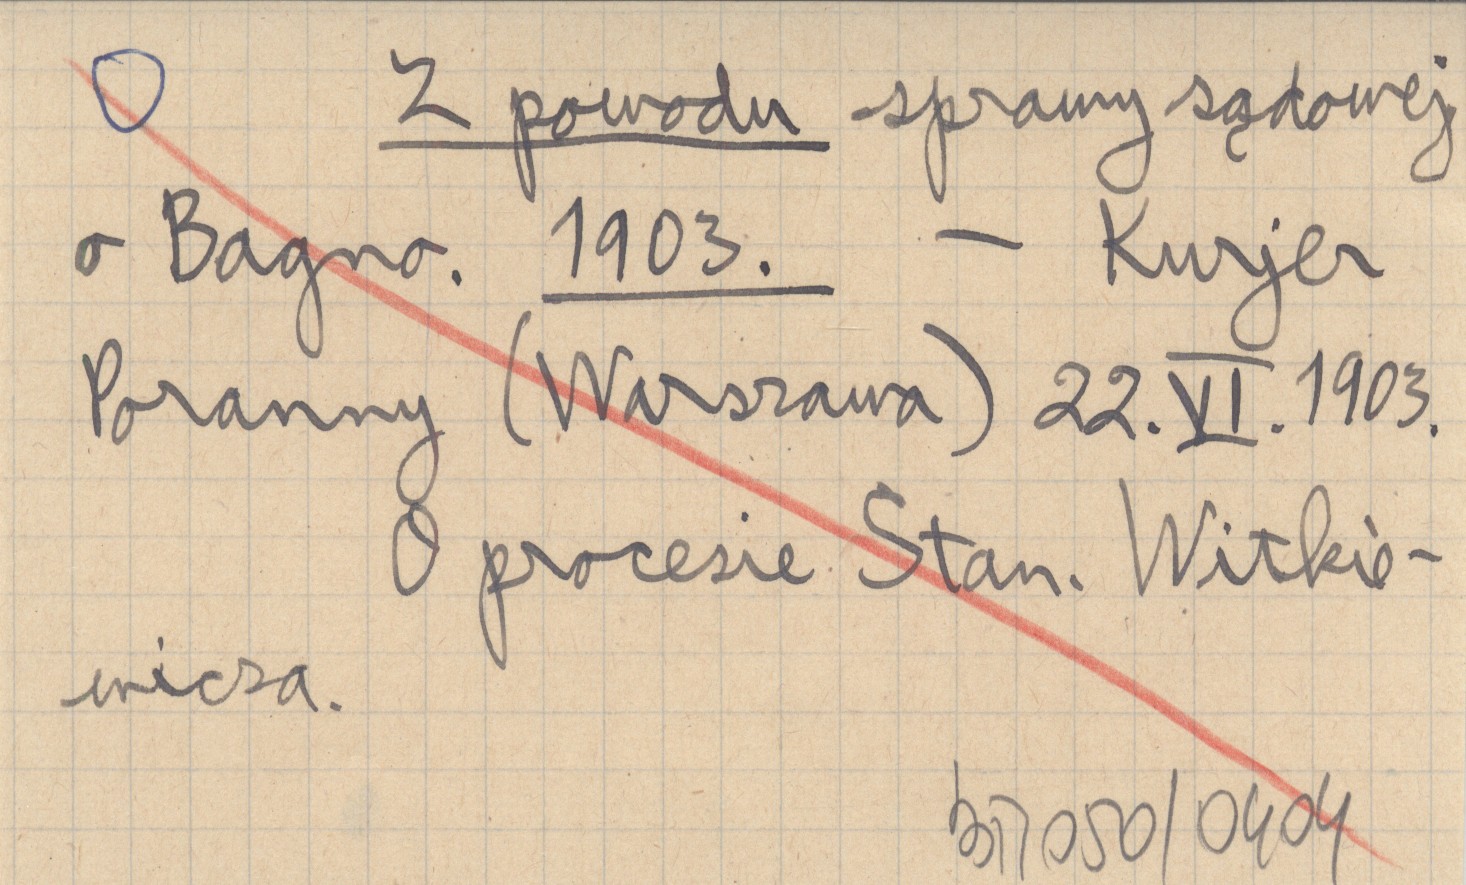 Z powodu sprawy sądowej
o Bagno. 1903. — Kurjer
Poranny (Warszawa) 22.VI.1903.
O procesie Stan. Witkie-
wicza.
050/0404